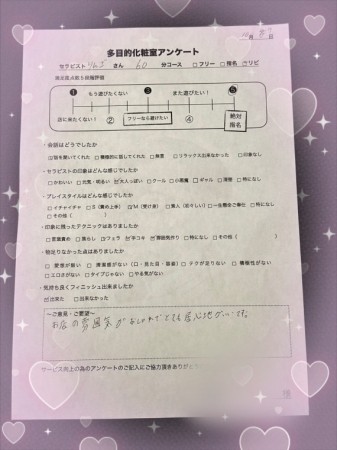 月 日
多目的化粧室アンケート
セラピスト りんご さん 60 分コース □フリー □指名 ☑リピ
満足度点数5段階評価
① ③ ⑤
もう遊びたくない また遊びたい!
店に来たくない! ② フリーなら遊びたい ④ 絶対指名
・会話はどうでしたか
☑話を聞いてくれた □積極的に話してくれた □無言 □リラックス出来なかった □印象なし
・セラピストの印象はどんな感じでしたか
□かわいい □元気・明るい ☑大人っぽい □クール □小悪魔 □ギャル □清楚 □特になし
・プレイスタイルはどんな感じでしたか
□イチャイチャ □S(責め上手) ☑M(受け身) □素人(初々しい) □一生懸命ご奉仕 □特になし
□その他( )
・印象に残ったテクニックはありましたか
□言葉責め □焦らし ☑フェラ ☑手コキ ☑前立腺 □特になし □その他( )
・物足りなかった点はありましたか
□愛想が無い □清潔感がない(口・見た目・容姿) □テクが足りない □積極性がない
□エロさがない □タイプじゃない □やる気がない
・気持ち良くフィニッシュ出来ましたか
☑出来た □出来なかった
~ご意見・ご要望~
お店の雰囲気がおしゃれでとても居心地がいいです。
サービス向上の為のアンケートのご記入にご協力頂きありがとう